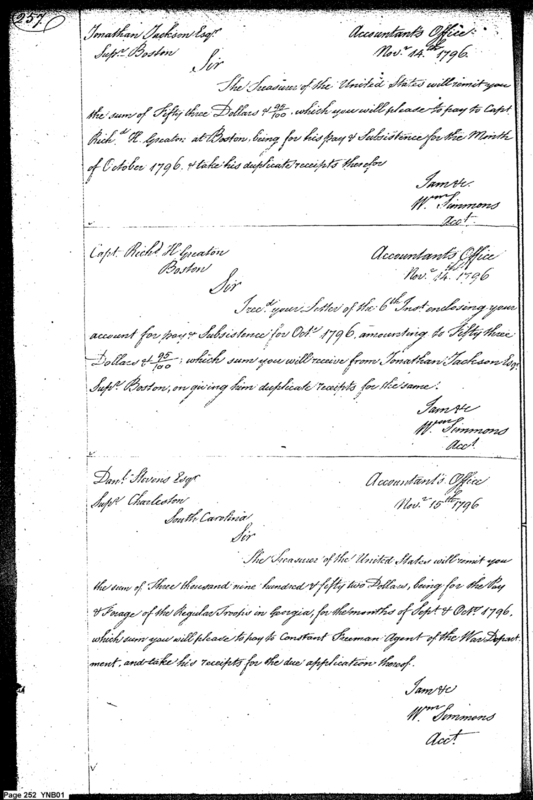 257
Jonathan Jackson Esqr Accountant's Office
Supr Boston Novr 14th 1796.
Sir
The Treasurer of the United States will remit you
the sum of Fifty three Dollars & 95/100. which you will please to pay to Capt
Richd H. Greaton at Boston, being for his pay & Subsistence for the Month
of October 1796. & take his duplicate receipts therefor
I am &c.
Wm Simmons
Acct.
Capt. Richd H Greaton Accountant's Office
Boston Novr 14th 1796
Sir
I recd your Letter of the 6th Inst enclosing your
account for pay & Subsistence for Octr 1796. amounting to Fifty three
Dollars & 95/100; which sum you will receive from Jonathan Jackson Esqr
Supr Boston, on giving him duplicate receipts for the same.
I am &c
Wm Simmons
Acct.
Danl Stevens Esqr Accountant's Office
Supr Charleston Novr 15th 1796
South Carolina
Sir
The Treasurer of the United States will remit you
the sum of Three thousand nine hundred & fifty two Dollars, being for the Pay
& Forage of the Regular Troops in Georgia, for the months of Sept. & Octr 1796.
which sum you will please to pay to Constant Freeman Agent of the War Depart
ment, and take his receipts for the due application thereof.
I am &c
Wm Simmons
Acct.
Page 252 YNB01